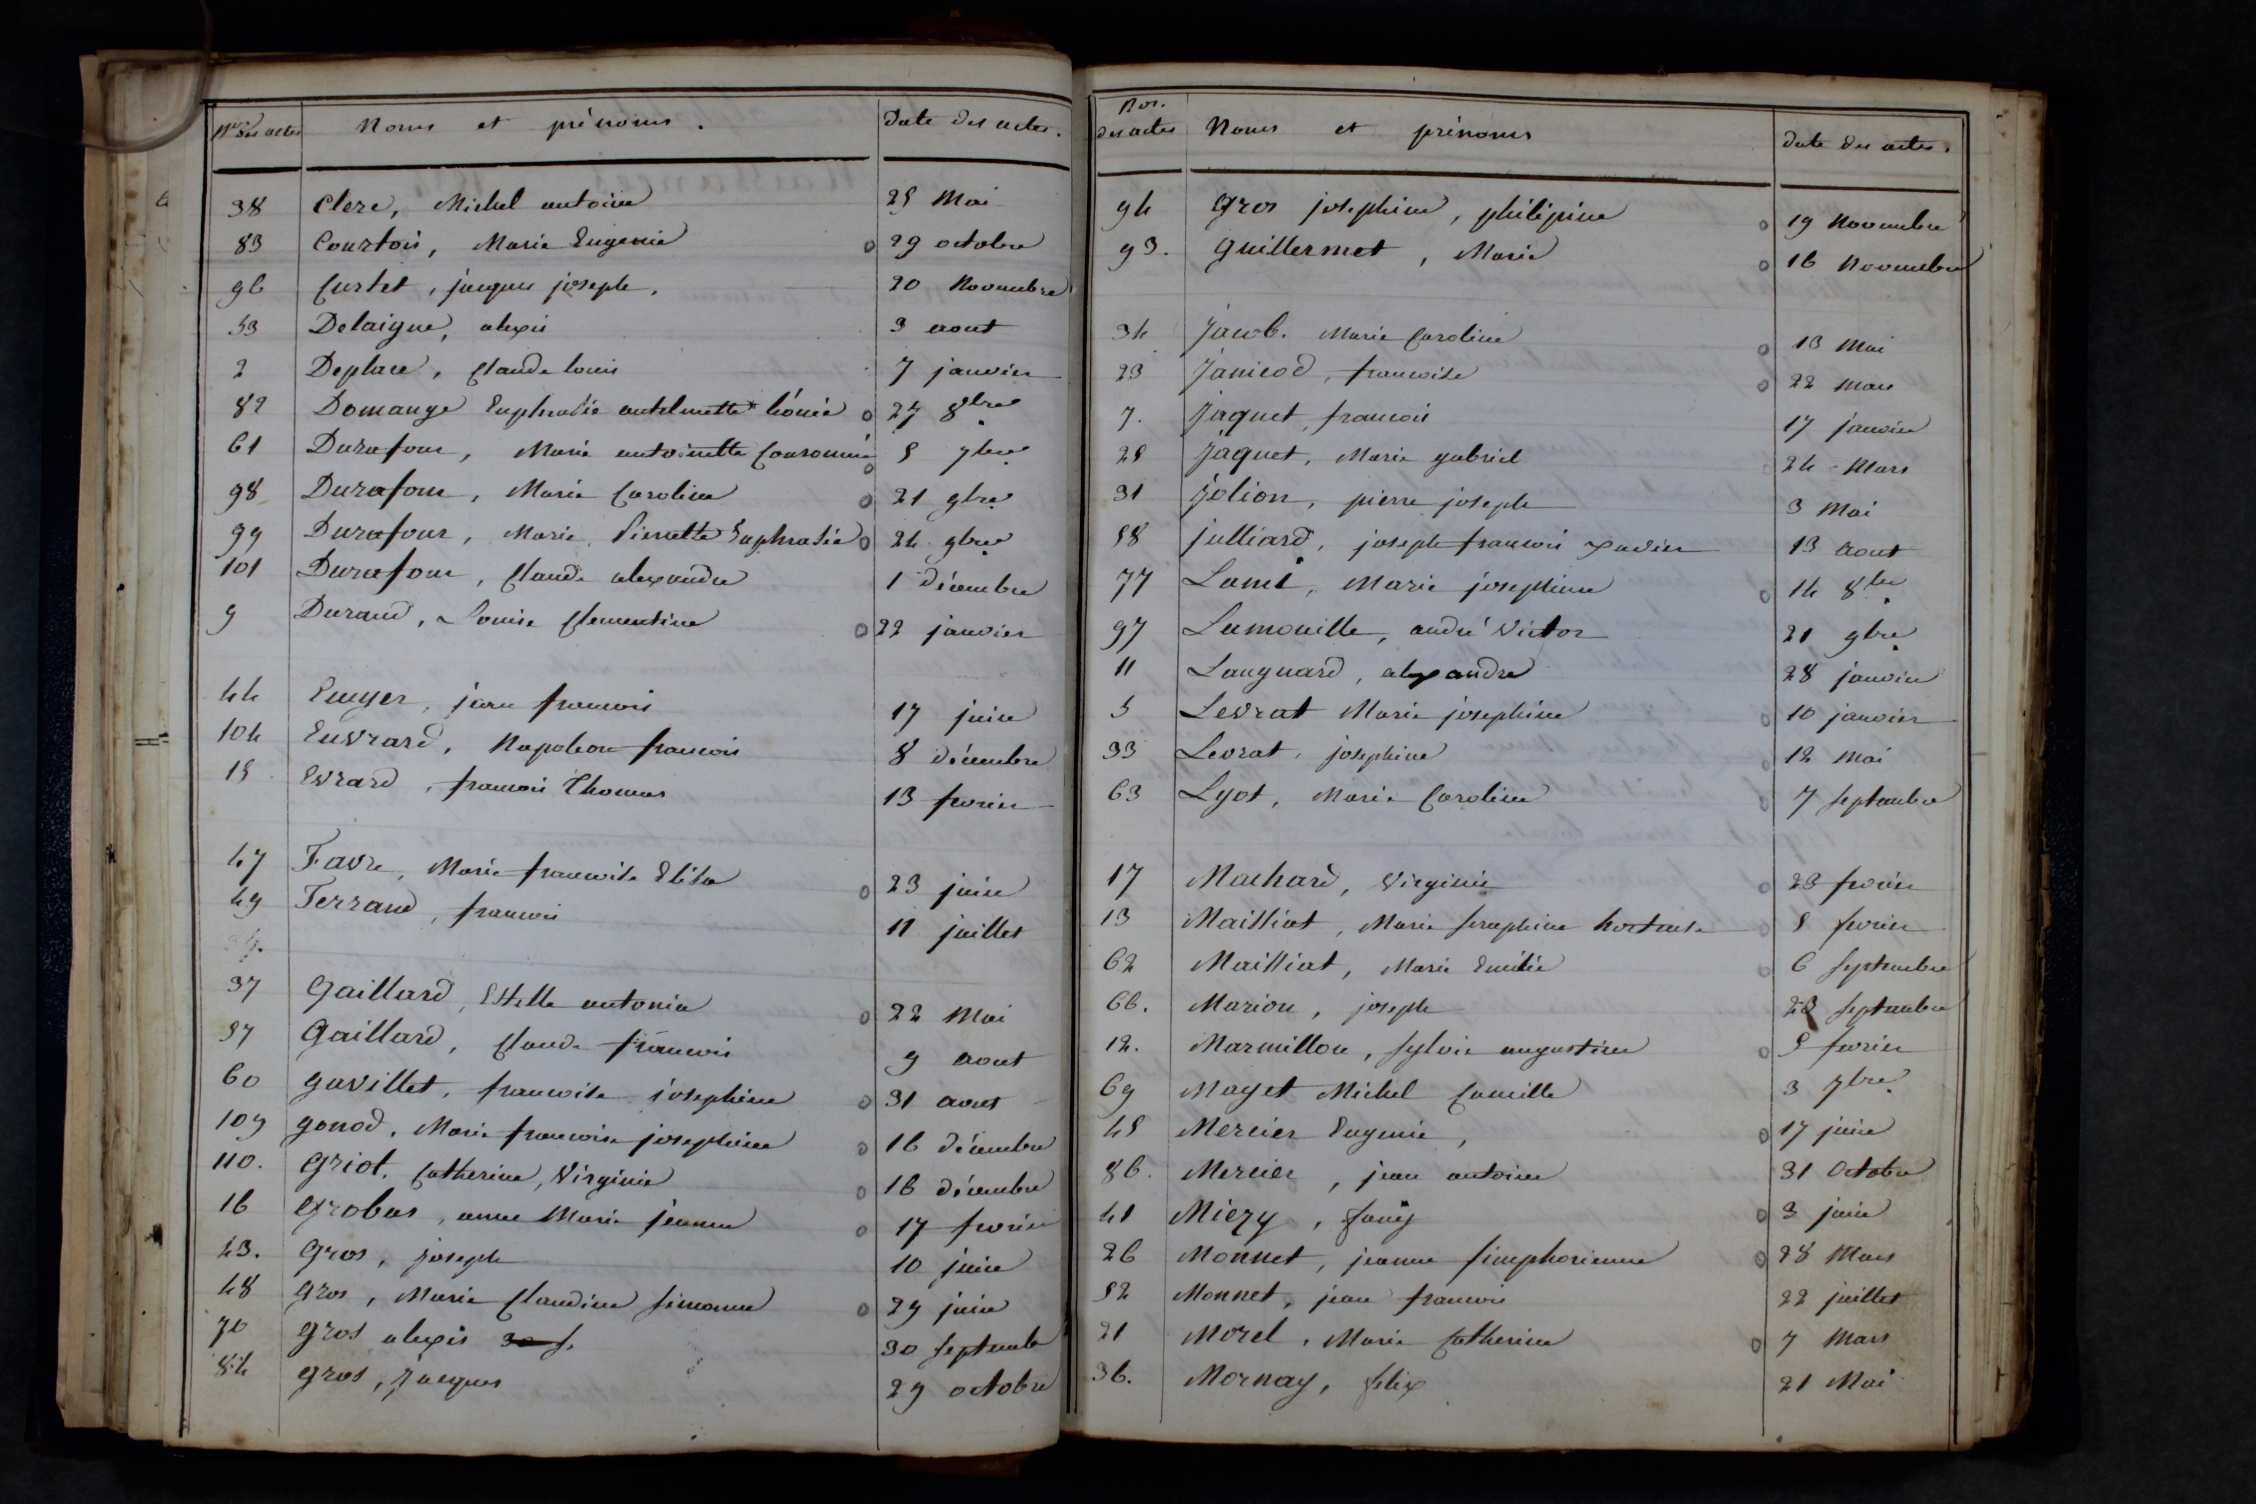 Nos des actes Noms et prénoms. Date des actes.
38 Clerc, Michel antoine 25 Mai
83 Courtois, Marie Eugenie 29 octobre
96 Curtet, jacques joseph. 20 Novembre
53 Delaigue, alexis 3 aout
2 Deplace, Claude louis 7 janvier
82 Domange Euphrasie antelmette léonie 27 8bre
61 Durafour, Marie antoinette Couronnée 5 7bre
98 Durafour, Marie Caroline 21 9bre
99 Durafour, Marie Pierrette Euphrasie 24 9bre
101 Durafour, Claude alexandre 1 décembre
9 Durand, Louise Clementine 22 janvier
44 Emyer, jean francois 17 juin
104 Euvrard, Napoleon francois 8 décembre
15 Evrard, francois Thomas 13 fevrier
47 Favre, Marie francoise Elisa 23 juin
49 Ferrand, francois 11 juillet
37 Gaillard, Estelle antonia 22 Mai
57 Gaillard, Claude francois 9 aout
60 gavillet, francoise josephine 31 aout
109 gonod, Marie francoise josephine 16 décembre
110. Griot, Catherine, Virginie 16 décembre
16 Grobas, anne Marie jeanne 17 fevrier
43. Gros, joseph 10 juin
48 Gros, Marie Claudine simonne 29 juin
70 Gros alexis 30 s. 30 septemb
84 gros, Jacques 29 octobre
Nos. des actes Noms et prénoms Date des actes.
94 Gros josephine, philipine 19 Novembre
93. Guillermet, Marie 16 Novembre
34 Jacob. Marie Caroline 13 Mai
23 Janicod, francoise 22 mars
7. Jaquet, francois 17 janvier
25 Jaquet, Marie gabriel 24 Mars
31 Jolion, pierre joseph 3 Mai
58 julliard, joseph francois xavier 13 aout
77 Lami, Marie josephine 14 8bre
97 Lamouille, andré Victor 21 9bre
11 Languard, alexandre 28 janvier
5 Levrat Marie josephine 10 janvier
33 Levrat, josephine 12 mai
63 Lyot, Marie Caroline 7 septembre
17 Machard, Virginie 23 fevrier
13 Mailliat, Marie seraphine hortense 5 fevrier
62 Mailliat, Marie Emélie 6 septembre
66. Marion, joseph 23 septembre
12. Marmillon, sylvie augustine 5 fevrier
69 Mayet Michel Camille 3 7bre
45 Mercier Eugenie, 17 juin
86. Mercier, jean antoine 31 Octobre
41 Miery, fany 3 juin
26 Monnet, jeanne simphorienne 28 Mars
52 Monnet, jean francois 22 juillet
21 Morel, Marie Catherine 7 Mars
36. Mornay, felix 21 Mai